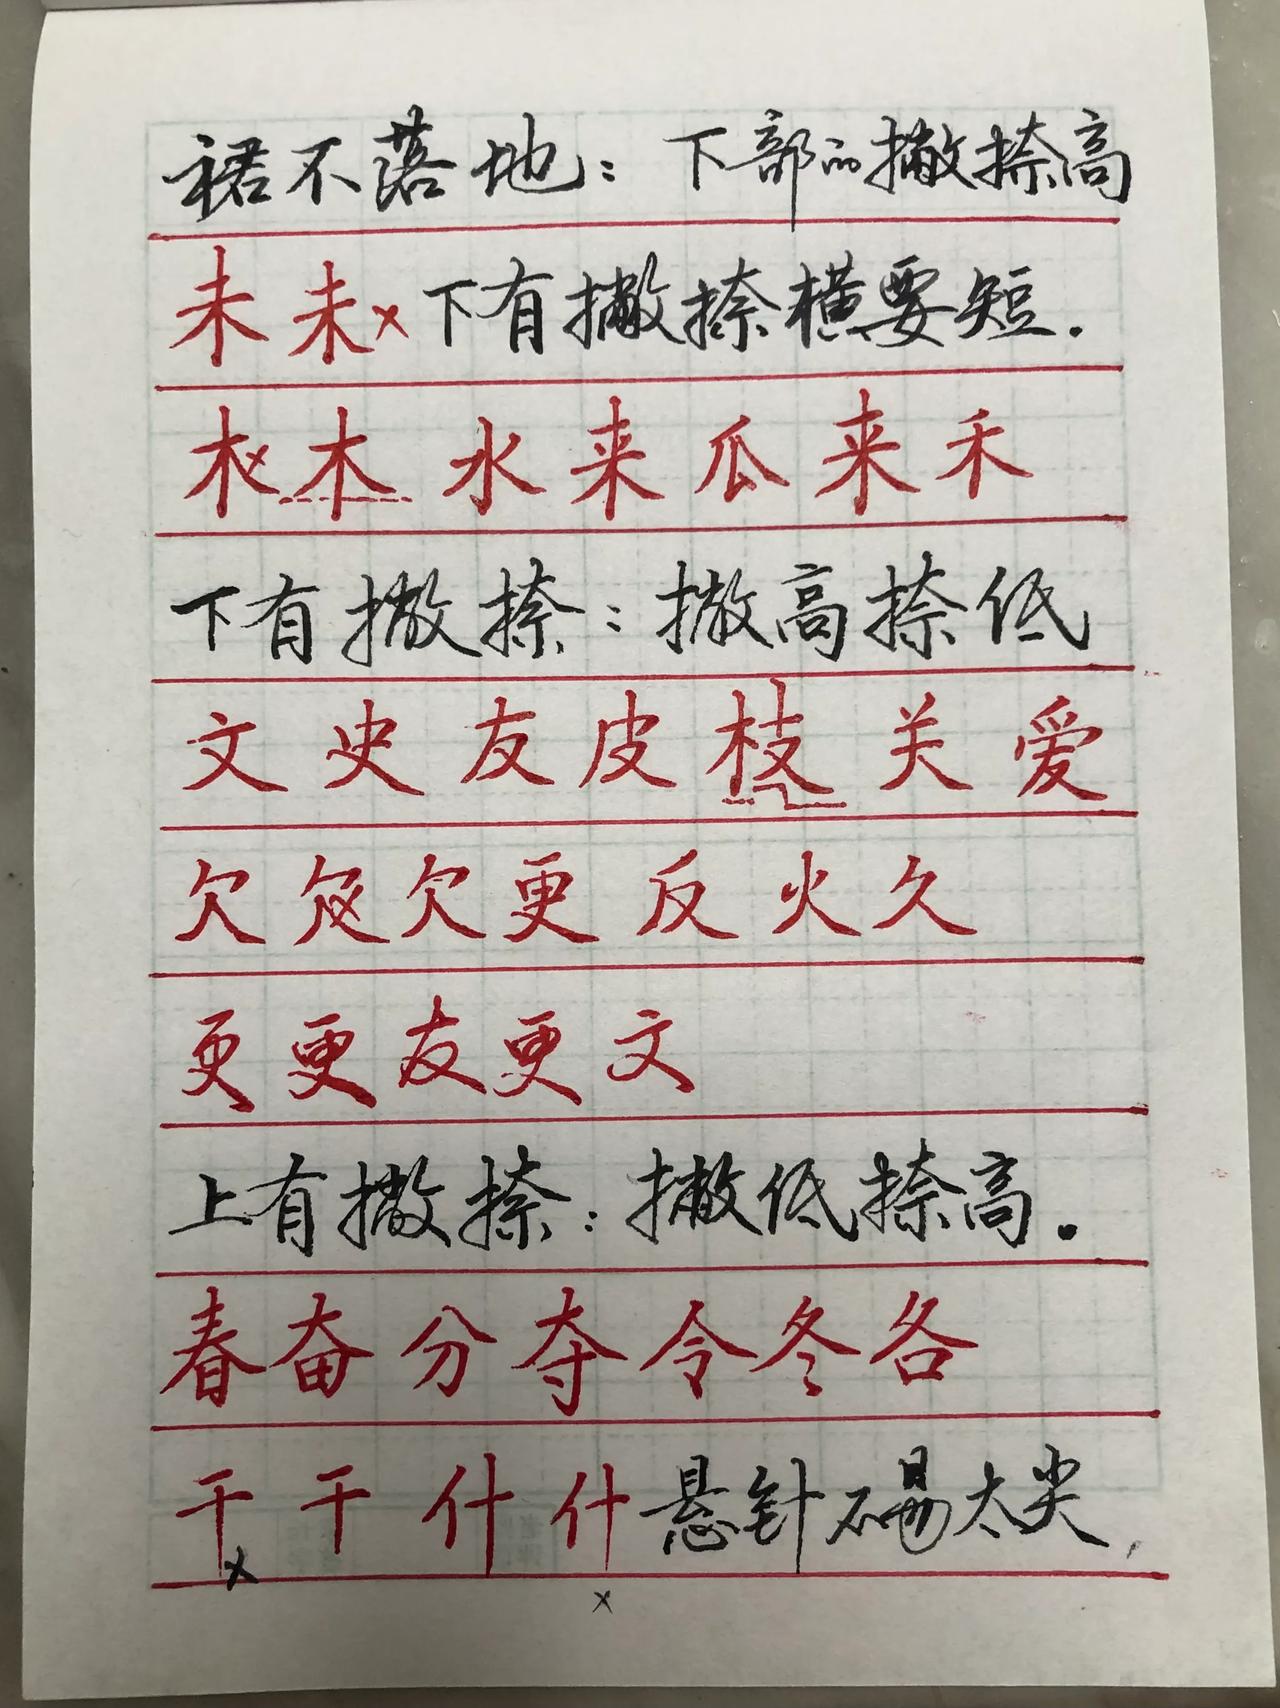 裙不落地：下部的撇捺高
未未×下有撇捺横要短.
木×木水来瓜来禾
下有撇捺：撇高捺低
文史友皮枝关爱
欠欠×欠更反火久
更更友更文
上有撇捺：撇低捺高.
春奋分夺令冬各
干干什什悬针不易太尖,
×
×